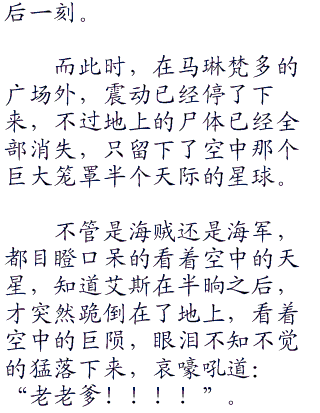 后一刻。
而此时，在马琳梵多的
广场外，震动已经停了下
来，不过地上的尸体已经全
部消失，只留下了空中那个
巨大笼罩半个天际的星球。
不管是海贼还是海军，
都目瞪口呆的看着空中的天
星，知道艾斯在半晌之后，
才突然跪倒在了地上，看着
空中的巨陨，眼泪不知不觉
的猛落下来，哀嚎吼道：
“老老爹！！！！”。